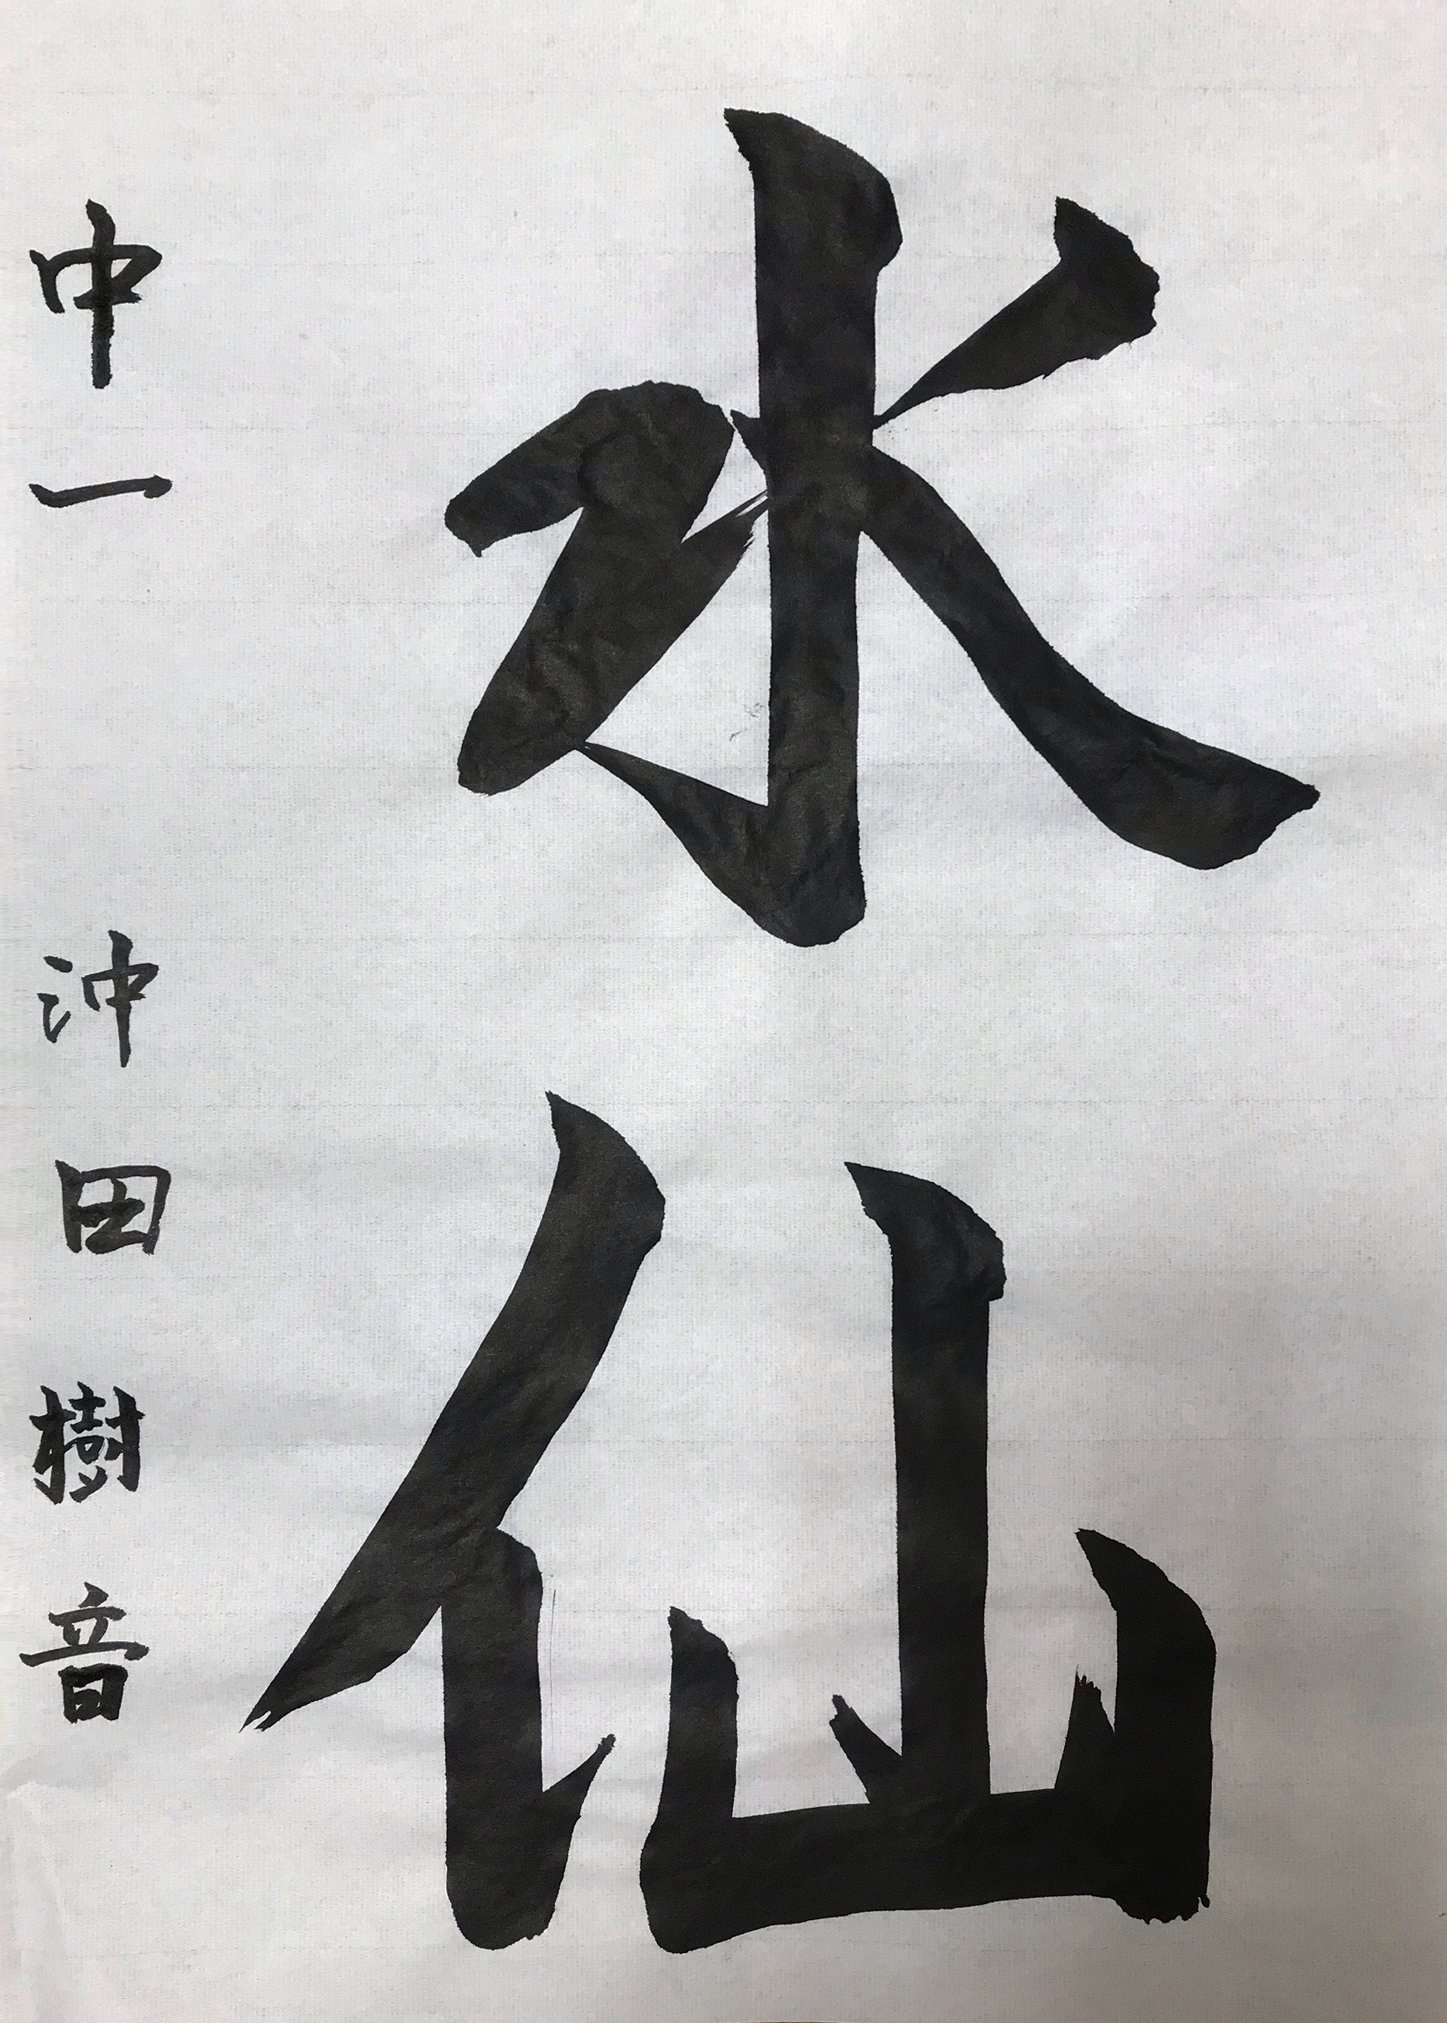 水仙
中一 沖田樹音